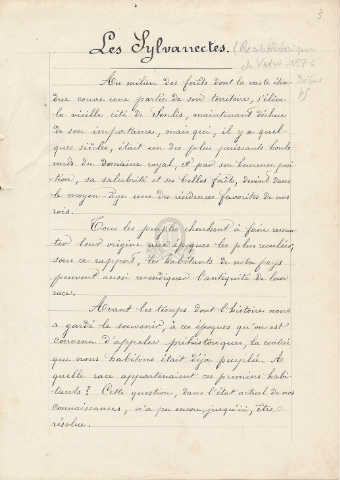 3
Les Sylvanectes.
Au milieu des forêts dont la vaste éten-
due couvre une partie de son territoire, s'élève
la vieille cité de Senlis, maintenant déchue
de son importance, mais qui, il y a quel-
ques siècles, était un des plus puissants boule-
vards du domaine royal, et par son heureuse posi-
tion, sa salubrité et ses belles forêts, devint dans
le moyen âge une des résidences favorites de nos
rois.
Tous les peuples cherchent à faire remon-
ter leur origine aux époques les plus reculées,
sous ce rapport, les habitants de notre pays
peuvent aussi revendiquer l'antiquité de leur
race.
Avant les temps dont l'histoire nous
a gardé le souvenir, à ces époques qu'on est
convenu d'appeler préhistoriques, la contrée
que nous habitons était déjà peuplée. A
quelle race appartenaient ces premiers habi-
tants? Cette question, dans l'état actuel de nos
connaissances, n'a pu encore, jusqu'ici, être
résolue.